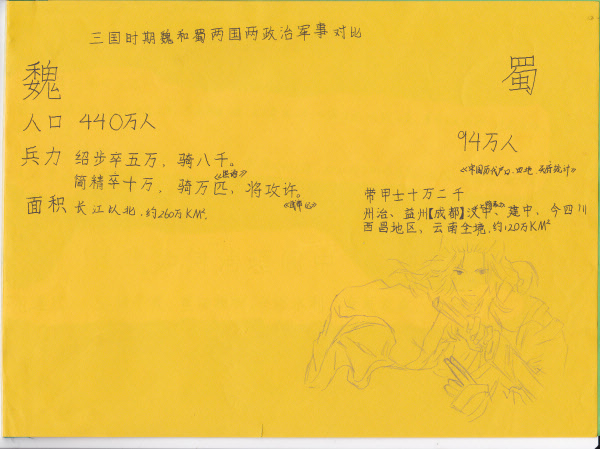 三国时期魏和蜀两国两政治军事对比
魏
蜀
人口 440万人
94万人
兵力 绍步卒五万，骑八千。
简精卒十万，骑万匹，将攻许。
面积 长江以北，约260万KM²
带甲士十万二千
州治、益州【成都】汉中、建中、今四川
西昌地区，云南全境，约120万KM²